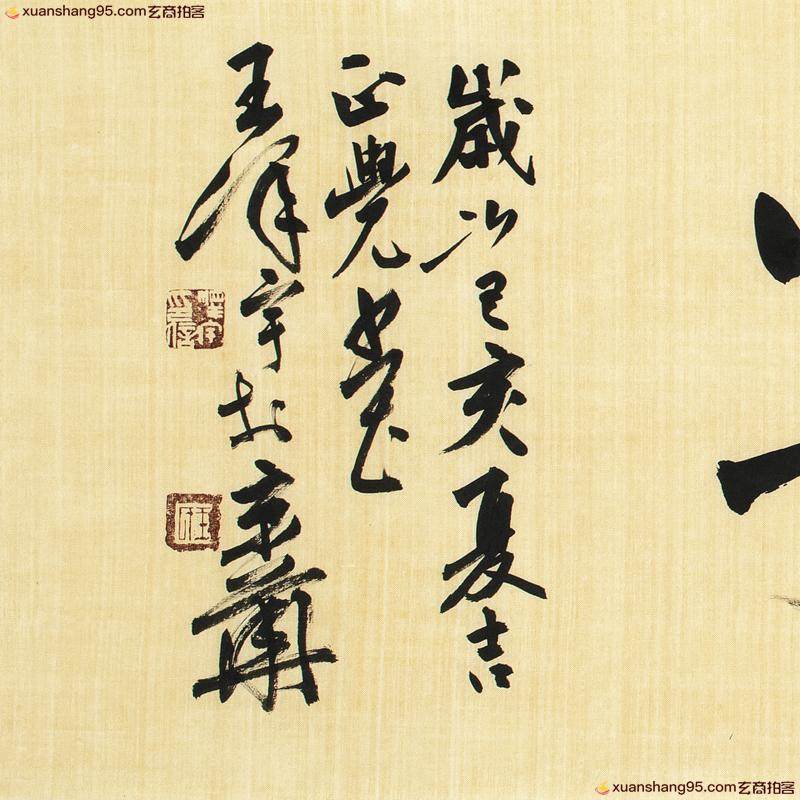 xuanshang95.com玄商拍客
歲次己亥夏吉
正覺堂
王澤宇於京華
xuanshang95.com玄商拍客